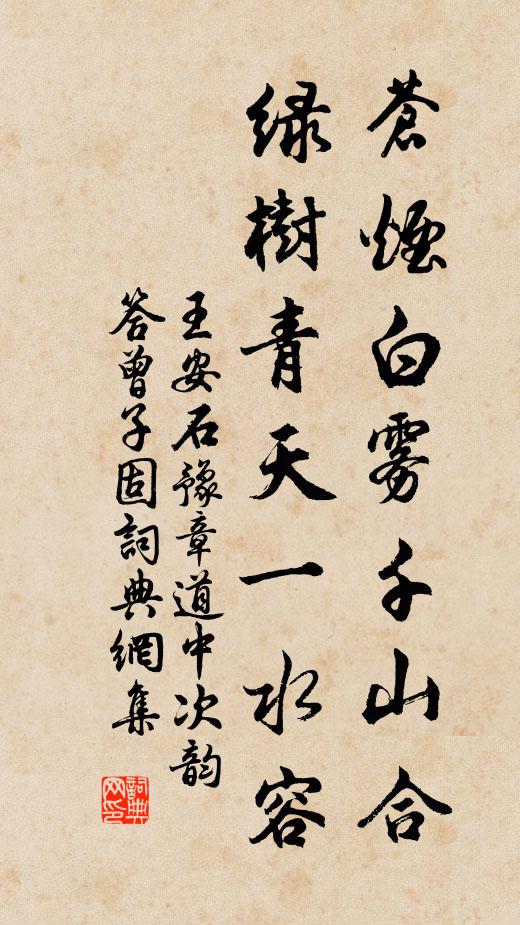 蒼煙白雾千山合
绿樹青天一水容
王安石豫章道中次韵
答曾子固詞典網集
詞典网印